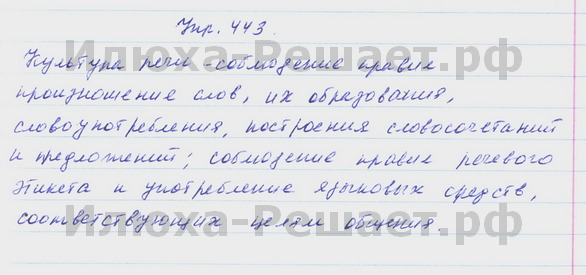 Упр. 443.
Илюха-Решает.рф
Культура речи - соблюдение правил
произношение слов, их образования,
словоупотребления, построения словосочетаний
и предложений; соблюдение правил речевого
этикета и употребление языковых средств,
соответствующих целям общения.
Илюха-Решает.рф